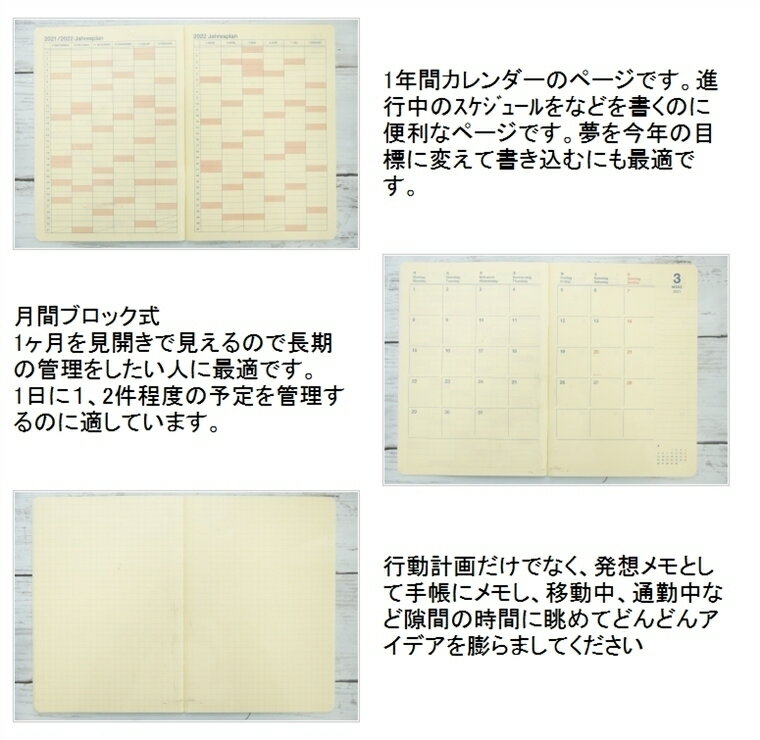 2021/2022 Jahresplan
2022 Jahresplan
1年間カレンダーのページです。進
行中のｽｹｼﾞｭｰﾙをなどを書くのに
便利なページです。夢を今年の目
標に変えて書き込むにも最適で
す。
月間ブロック式
1ヶ月を見開きで見えるので長期
の管理をしたい人に最適です。
1日に１、2件程度の予定を管理す
るのに適しています。
3
MÄRZ
2021
1 2 3 4 5 6 7
8 9 10 11 12 13 14
15 16 17 18 19 20 21
22 23 24 25 26 27 28
29 30 31
行動計画だけでなく、発想メモとし
て手帳にメモし、移動中、通勤中な
ど隙間の時間に眺めてどんどんア
イデアを膨らましてください